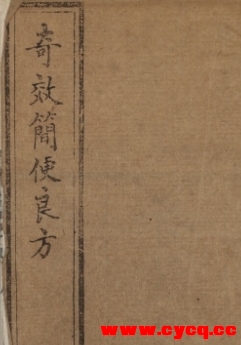 奇效簡便良方
www.cycq.cc